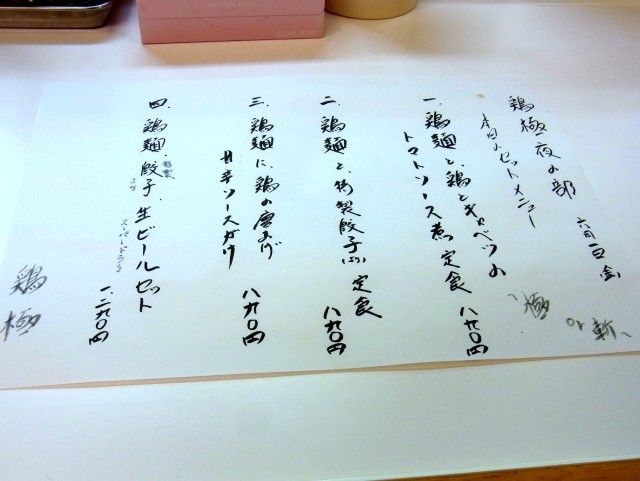 鶏極 夜の部 六月一日(金)
本日のセットメニュー
一、鶏麺と、鶏とキャベツの
トマトソース煮、定食 八九〇円
二、鶏麺と、特製餃子(5ヶ)定食
八九〇円
三、鶏麺に、鶏の唐あげ
甘辛ソースがけ 八九〇円
四、鶏麺・特製餃子、生ビールセット
5ヶ スーパードライ
一、二九〇円
〜極
or 斬〜
鶏極